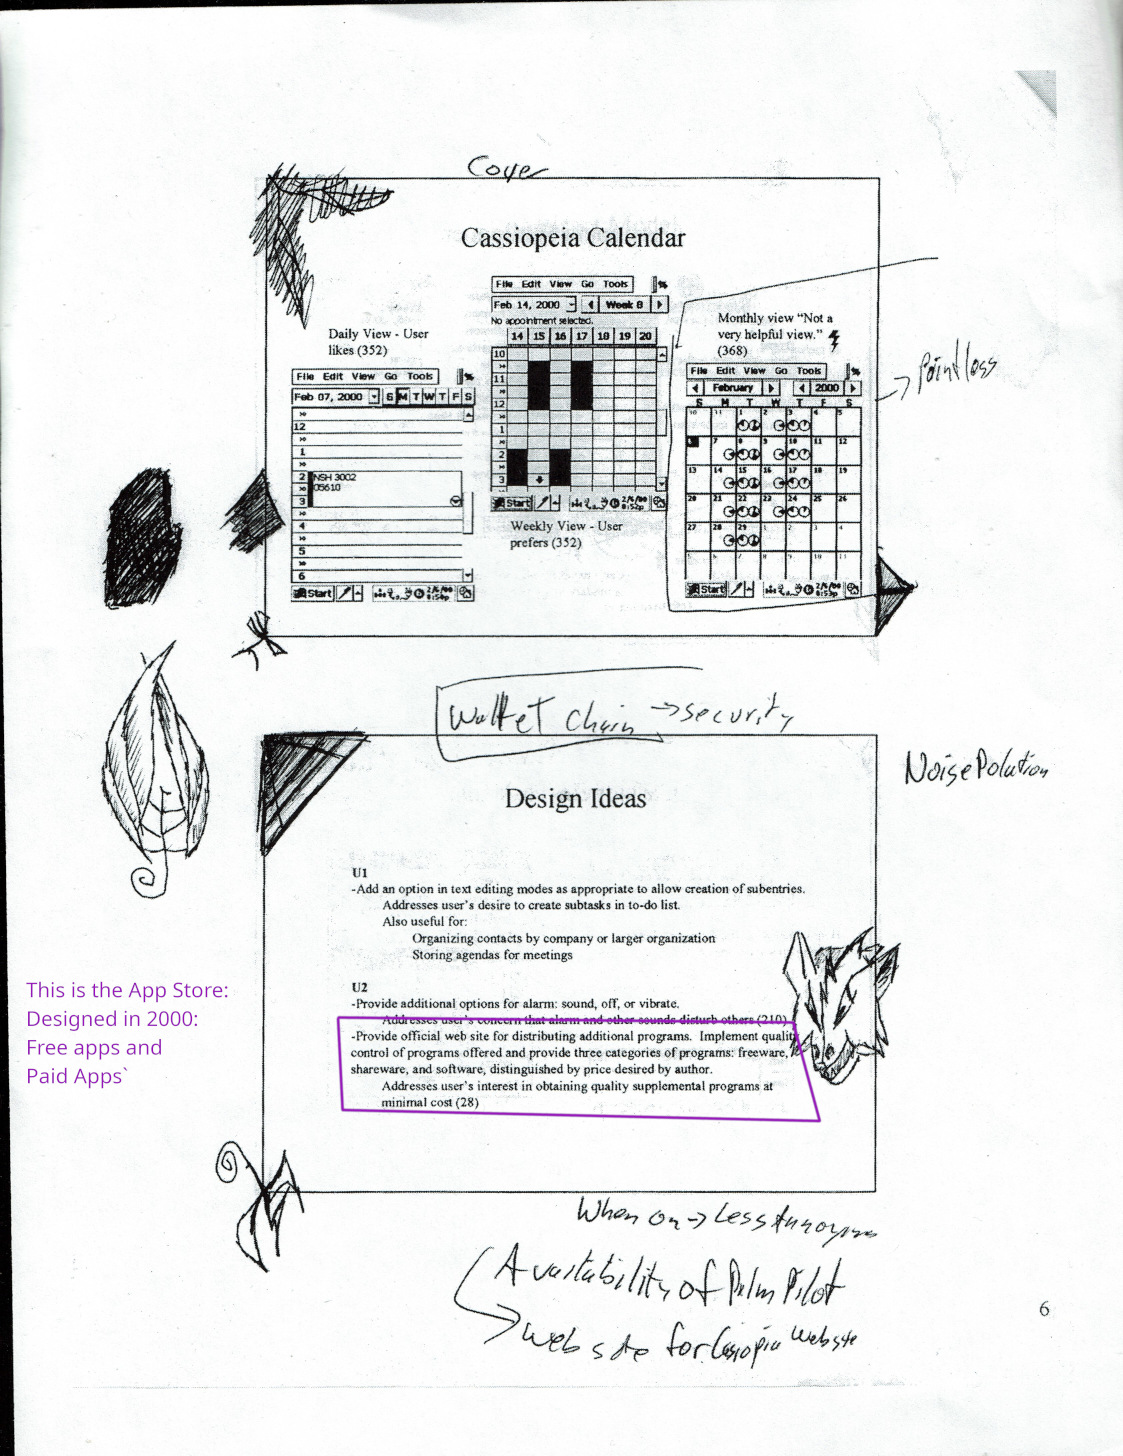 Cover
Cassiopeia Calendar
Daily View - User
likes (352)
File Edit View Go Tools
Feb 07, 2000 S M T W T F S
12
1
2 NSH 3002
05610
3
4
5
6
Start
File Edit View Go Tools
Feb 14, 2000 Week 8
No appointment selected.
14 15 16 17 18 19 20
10
11
12
1
2
3
Start
Weekly View - User
prefers (352)
Monthly view “Not a
very helpful view.”
(368)
File Edit View Go Tools
February 2000
S M T W T F S
30 31 1 2 3 4 5
6 7 8 9 10 11 12
13 14 15 16 17 18 19
20 21 22 23 24 25 26
27 28 29 1 2 3 4
5 6 7 8 9 10 11
Start
Pointless
Wallet Chain → security
Noise Polution
Design Ideas
U1
-Add an option in text editing modes as appropriate to allow creation of subentries.
Addresses user’s desire to create subtasks in to-do list.
Also useful for:
Organizing contacts by company or larger organization
Storing agendas for meetings
U2
-Provide additional options for alarm: sound, off, or vibrate.
Addresses user’s concern that alarm and other sounds disturb others (210)
-Provide official web site for distributing additional programs. Implement quality
control of programs offered and provide three categories of programs: freeware,
shareware, and software, distinguished by price desired by author.
Addresses user’s interest in obtaining quality supplemental programs at
minimal cost (28)
This is the App Store:
Designed in 2000:
Free apps and
Paid Apps`
When on → Less Annoying
Availability of Palm Pilot
→ web site for Casiopia Website
6